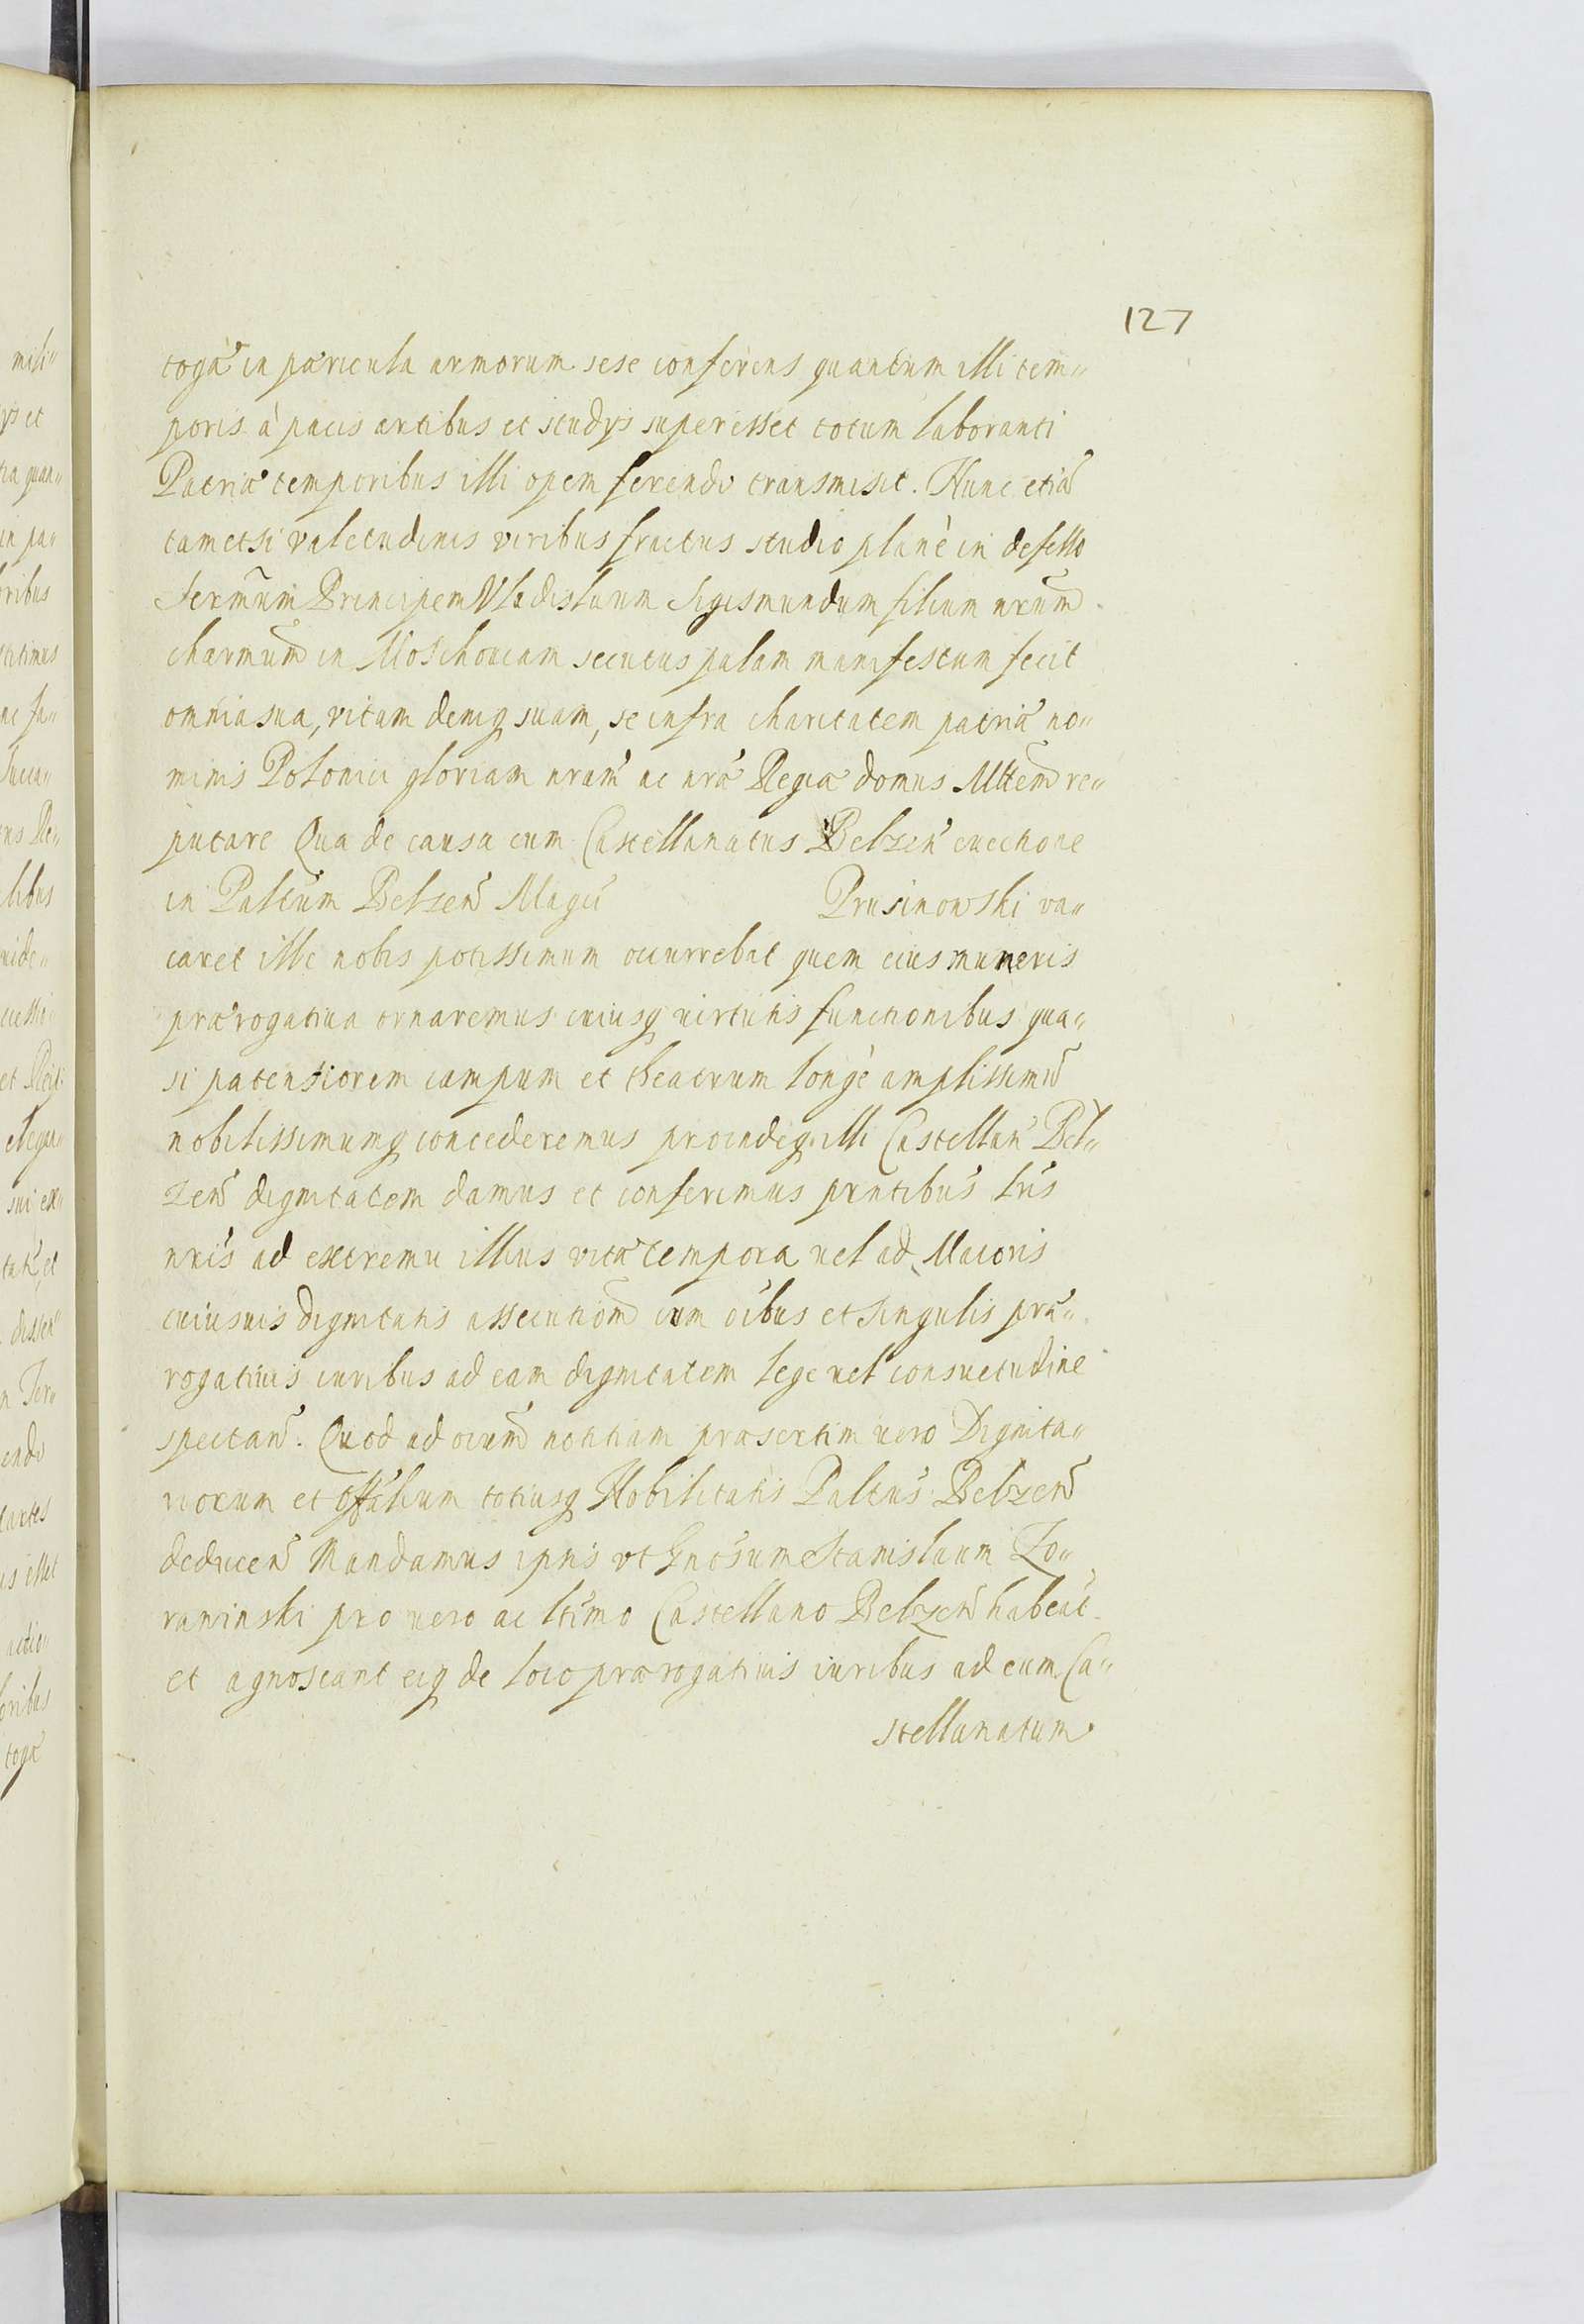 127
togæ in pæricula armorum sese conferens quantum illi tem„
poris à pacis artibus et studys superesset totum laboranti
Patriæ temporibus illi opem ferendo transmisit. Nunc etiã
tametsi valetudinis viribus fractus studio planè in defesso
Sermũm Principem Vladislaum Sigismundum filium nrũm
charmũm in Moschouiam secutus palam manifestum fecit
omnia sua, vitam deniq suam, se infra charitatem patriæ no„
minis Polonici gloriam nram̃ ac nræ̃ Regiæ domus Mttem̃ re„
putare Qua de causa cum Castellanatus Belzeñ euectione
in Paltũm Belzeñ Magci̇
Prusinowski va„
caret ille nobis potissimum occurrebat quem eius muneris
prærogatiua ornaremus cuiusq virtutis functionibus qua„
si patentiorem campum et theatrum longè amplissimũ
nobilissimumq concederemus proindeq illi Castellan̄ Bel„
zeñ dignitatem damus et conferimus prntibus̃ lris̃
nris̃ ad extrema illius vitæ tempora uel ad Maioris
cuiusuis dignitatis assecutiom̃ cum oĩbus et singulis præ„
rogatiuis iuribus ad eam dignitatem lege uel consuetudine
spectañ. Quod ad oium̃ notitiam præsertim uero Dignita„
riorum et Offãlium totiusq Nobilitatis Paltus̃ Belzeñ
deduceñ Mandamus ipñis vt Gnõsum Stanislaum Zo„
rawinski pro uero ac ltĩmo Castellano Belzeñ habeãt
et agnoscant eiq de loco prærogatiuis iuribus ad eum Ca„
stellanatum
mili„
ys et
tia quan„
in pa„
oribus
ac fa„
ens Re„
libus
uide„
et
sui ex„
endo
actio„
oribus
togæ